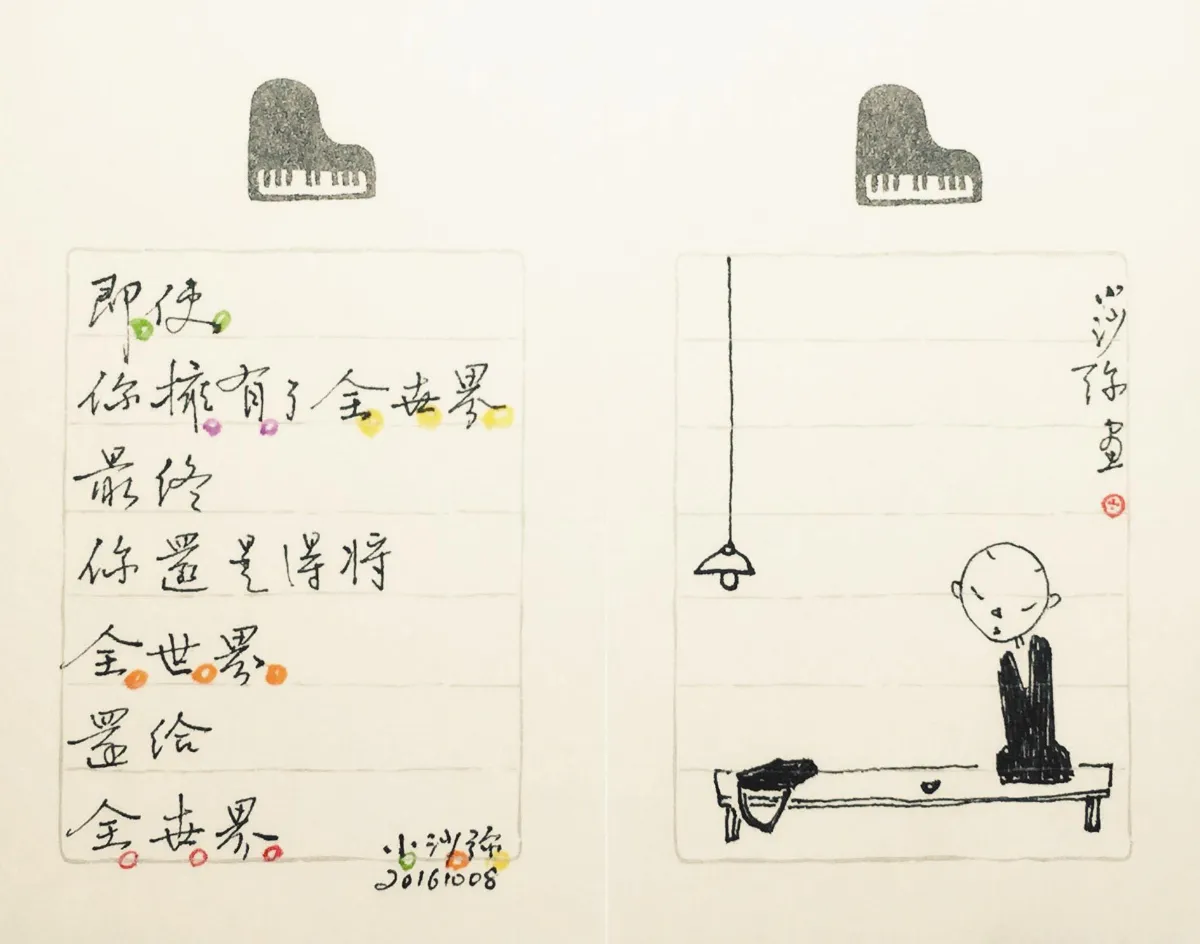 即使
你擁有了全世界
最终
你還是得将
全世界
還给
全世界
小沙弥
20161008
小沙弥画